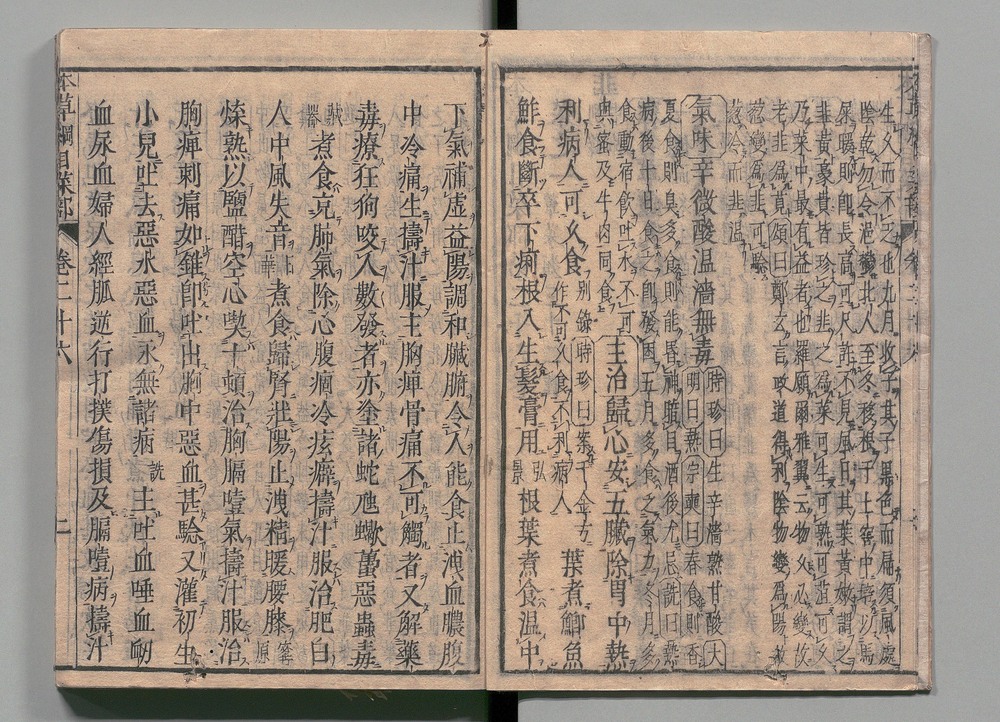 生久而不乏也九月收子其子黑色而扁須風處
陰乾勿令浥鬱北人至冬移根于土窖中培以馬
屎暖則即長高可尺許不見風日其葉黃嫩謂之
韭黃豪貴皆珍之韭之爲菜可生可熟可菹可久
乃菜中最有益者也羅願爾雅翼云物久必變故
老韭爲莧頌曰鄭玄言政道得則陰物變爲陽故
葱變爲韭可驗
葱冷而韭溫
氣味辛微酸溫濇無毒時珍曰生辛濇熟甘酸大
明曰熱宗奭曰春食則香
夏食則臭多食則能昏神暗目酒後尤忌詵曰熱
病後十日食之即發困五月多食乏氣力冬月多
食動宿飲吐水不可
與蜜及牛肉同食主治歸心安五臟除胃中熱
利病人可久食別錄時珍曰案千金方
作不可久食不利病人葉煮鯽魚
鮓食斷卒下痢根入生髮膏用弘景根葉煮食溫中
下氣補虛益陽調和臟腑令人能食止洩血膿腹
中冷痛生擣汁服主胸痺骨痛不可觸者又解藥
毒療狂狗咬人數發者亦塗諸蛇虺蠍蠆惡蟲毒
藏器煮食充肺氣除心腹痼冷痃癖擣汁服治肥白
人中風失音日華煮食歸腎壯陽止洩精暖腰膝寗原
煠熟以鹽醋空心喫十頓治胸膈噎氣擣汁服治
胸痺刺痛如錐即吐出胸中惡血甚驗又灌初生
小兒吐去惡水惡血永無諸病詵主吐血唾血衂
血尿血婦人經脈逆行打撲傷損及膈噎病擣汁
本草綱目菜部 卷二十六 二